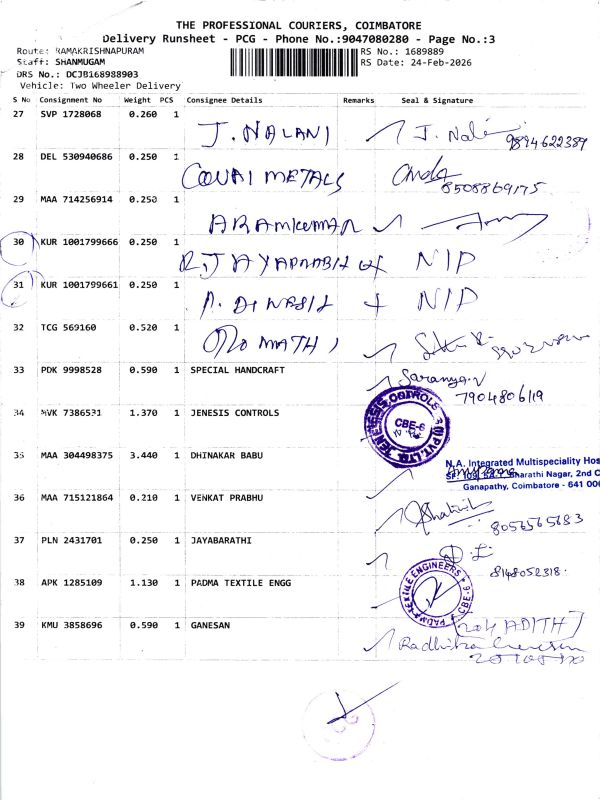 THE PROFESSIONAL COURIERS, COIMBATORE
Delivery Runsheet - PCG - Phone No.:9047080280 - Page No.:3
Route: RAMAKRISHNAPURAM RS No.: 1689889
Staff: SHANMUGAM RS Date: 24-Feb-2026
DRS No.: DCJB168988903
Vehicle: Two Wheeler Delivery
S No Consignment No Weight PCS Consignee Details Remarks Seal & Signature
27 SVP 1728068 0.260 1 J. NALANI 9894622389
28 DEL 530940686 0.250 1 COVAI METALS 8508869175
29 MAA 714256914 0.250 1 ARAMKUMAR
30 KUR 1001799666 0.250 1 NIP
31 KUR 1001799661 0.250 1 NIP
32 TCG 569160 0.520 1 MATHI
33 PDK 9998528 0.590 1 SPECIAL HANDCRAFT Saranya.V
7904806119
34 MVK 7386531 1.370 1 JENESIS CONTROLS JENESIS CONTROLS (I) PVT. LTD. CBE-6
35 MAA 304498375 3.440 1 DHINAKAR BABU
N.A. Integrated Multispeciality Hos
Bharathi Nagar, 2nd C
Ganapathy, Coimbatore - 641 00
36 MAA 715121864 0.210 1 VENKAT PRABHU
8056565683
37 PLN 2431701 0.250 1 JAYABARATHI
8148052318.
38 APK 1285109 1.130 1 PADMA TEXTILE ENGG PADMA TEXTILE ENGINEERS CBE-6
39 KMU 3858696 0.590 1 GANESAN 204 ADITH
Radhika